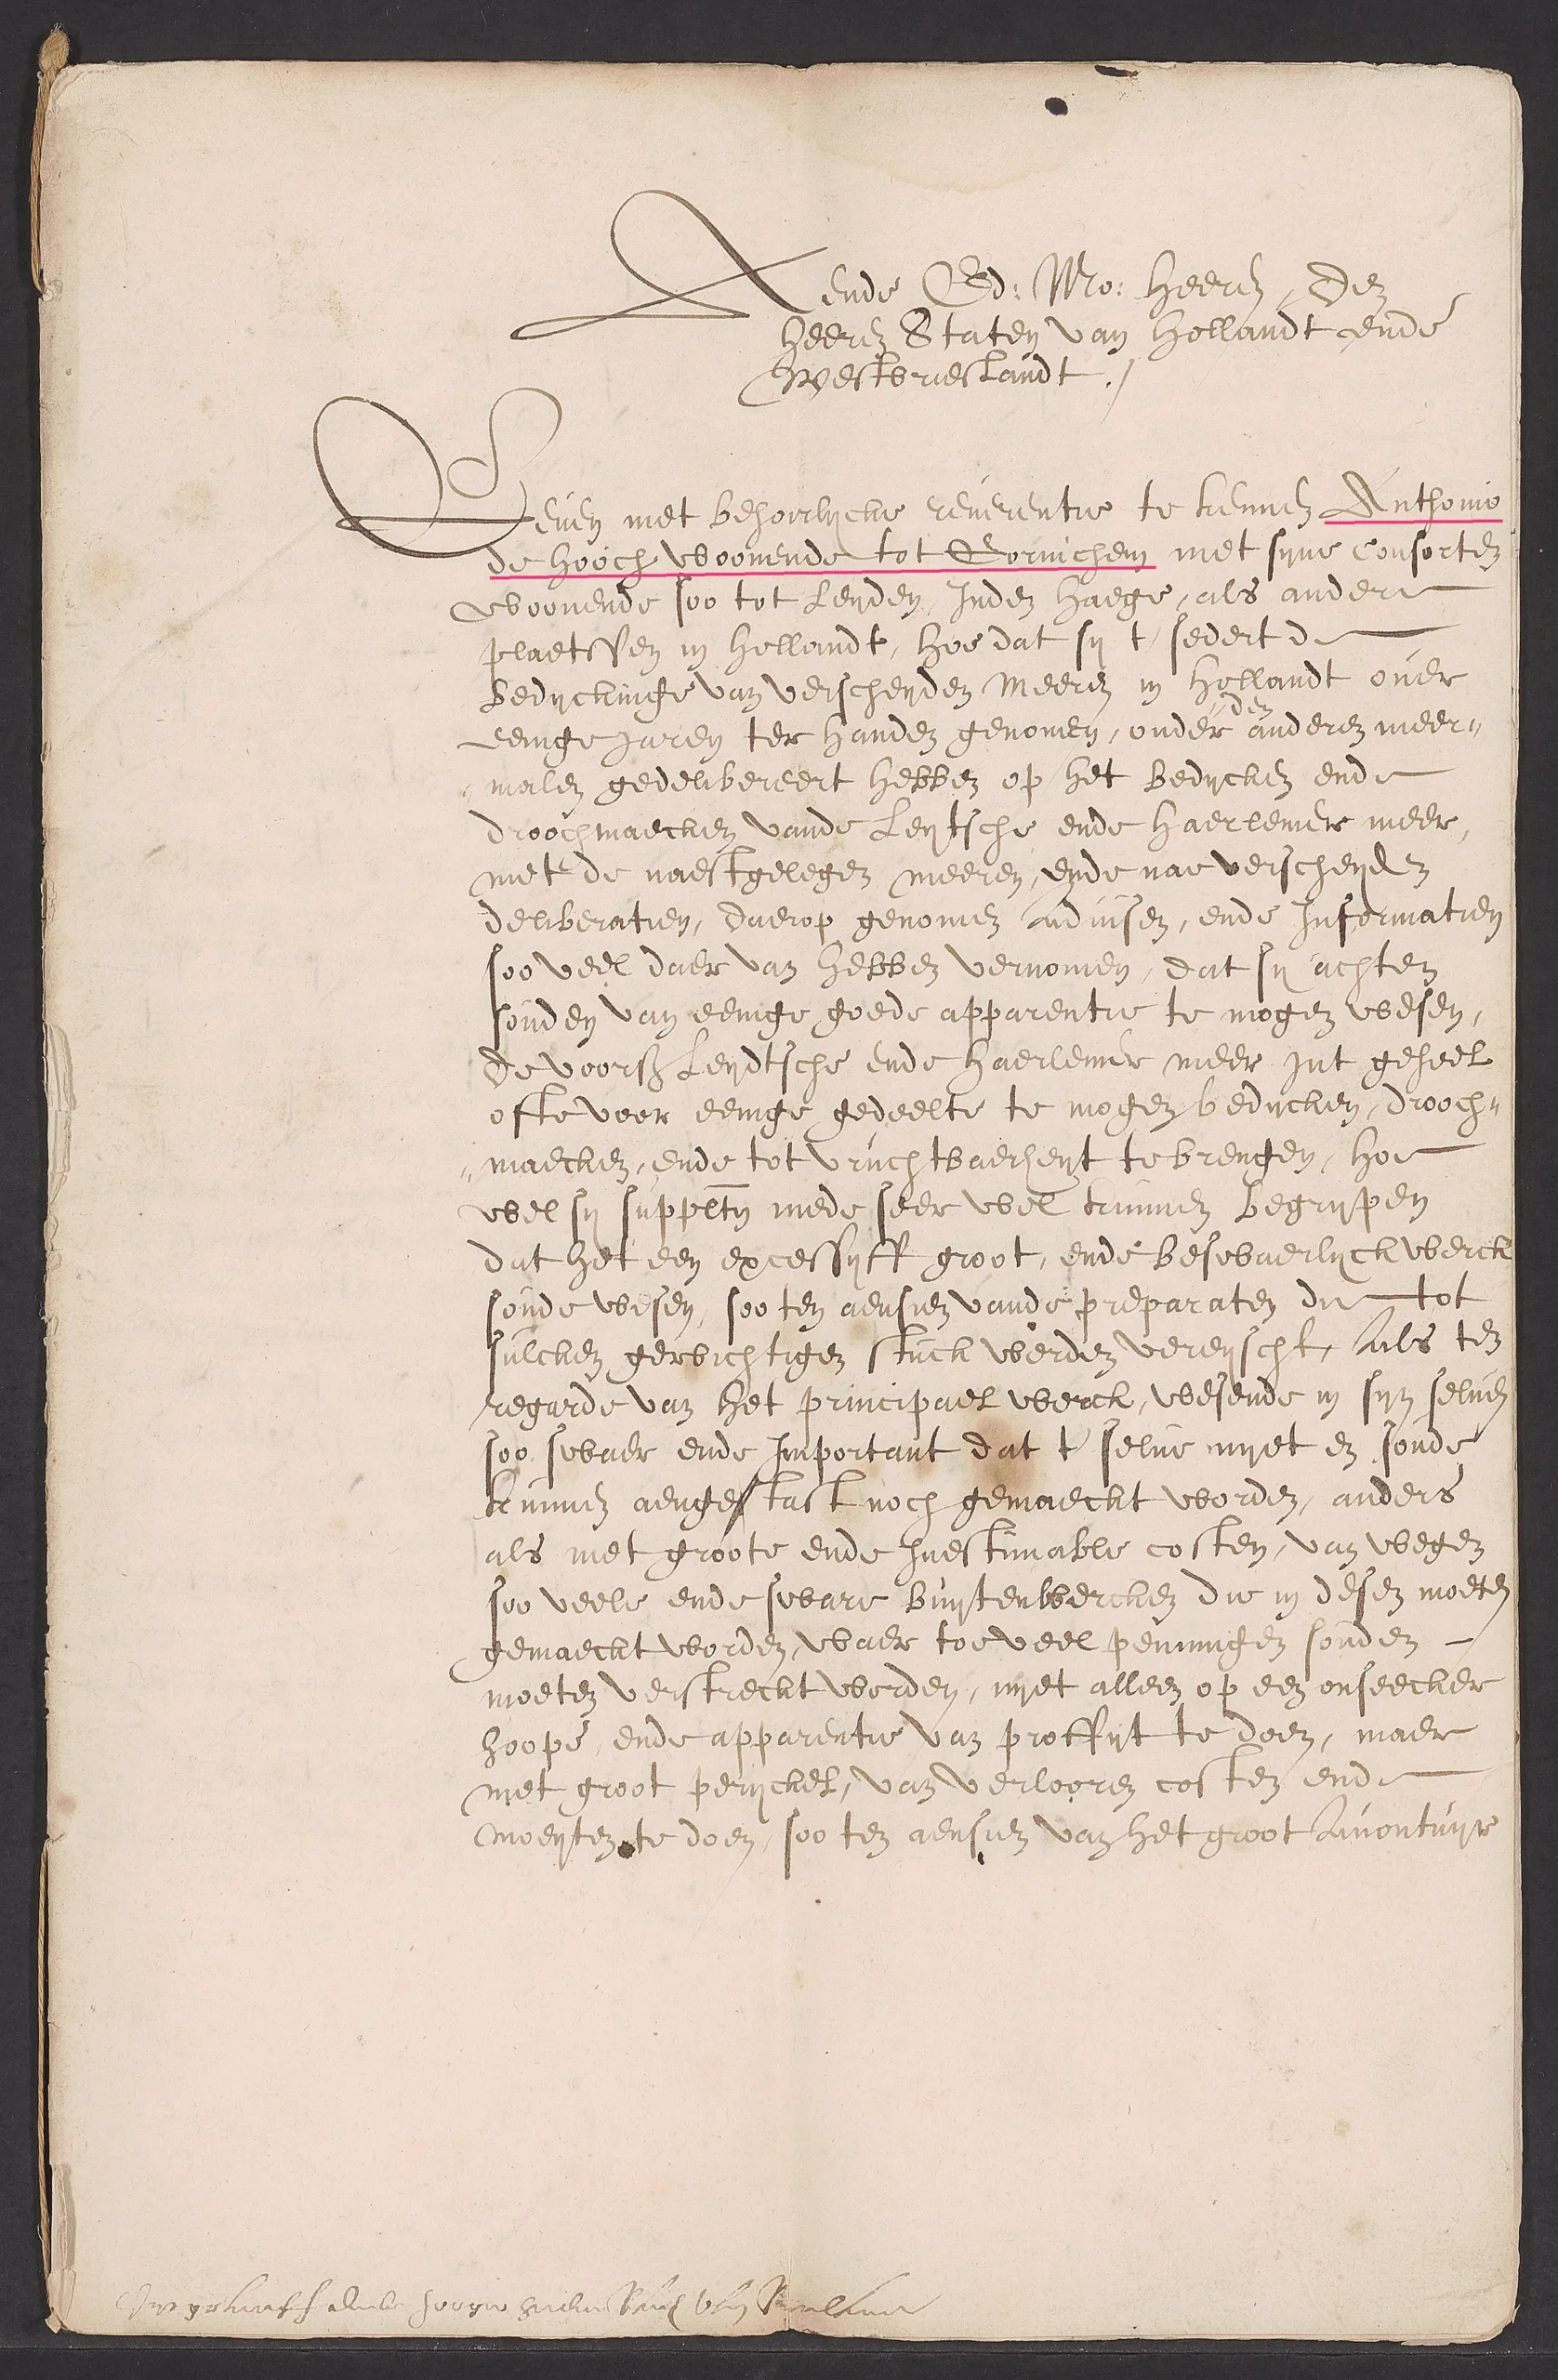 Aende Ed: Mo: Heeren, den
heeren Staten van Hollandt ende
Westvrieslandt ./
Geven met behoorlycke reverentie te kennen Anthonio
de Hooch woonende tot Gorinchem met syne Consorten
woonende soo tot Leyden, Inden Haege, als andere
plaetssen in Hollandt, hoe dat sy t' sedert de
Bedyckinge van verscheyden Meeren in Hollandt over
eenige jaren ter handen genomen, onder den anderen meer"
"malen gedelibereert hebben op het Bedycken ende
droochmaecken vande Leytsche ende Haerlemer meer,
met de naestgelegen meeren, ende nae verscheyden
deliberatien, daerop genomen advisen, ende Informatien
soo veel daer van hebben vernomen, dat sy achten
souden van eenige goede apparentie te mogen wesen,
de voorsz Leydtsche ende Haerlemer meer int geheel
ofte voor eenige gedeelte te mogen bedycken, drooch"
"maecken, ende tot vruchtbaerheyt te brengen, hoe
wel sy supplten mede seer wel kunnen begrypen
dat het een excessyff groot, ende beswaerlyck werck
soude wesen, soo ten aensien vande preparaten die tot
sulcken gewichtigen stuck werden vereyscht, als ten
regarde van het principael werck, wesende in syn selven
soo swaer ende Important dat t' selve nyet en soude
kunnen aengetast noch gemaeckt worden, anders
als met groote ende Inestimable costen, van wegen
soo veele ende sware buytenwercken die in desen moeten
gemaeckt worden, waer toe veel penningen souden
moeten verstreckt worden, nyet alleen op een onseecker
hoope, ende apparentie van proffyt te doen, maer
met groot peryckel, van verlooren costen ende
moeyten te doen, soo ten aensien van het groot Avontuyr